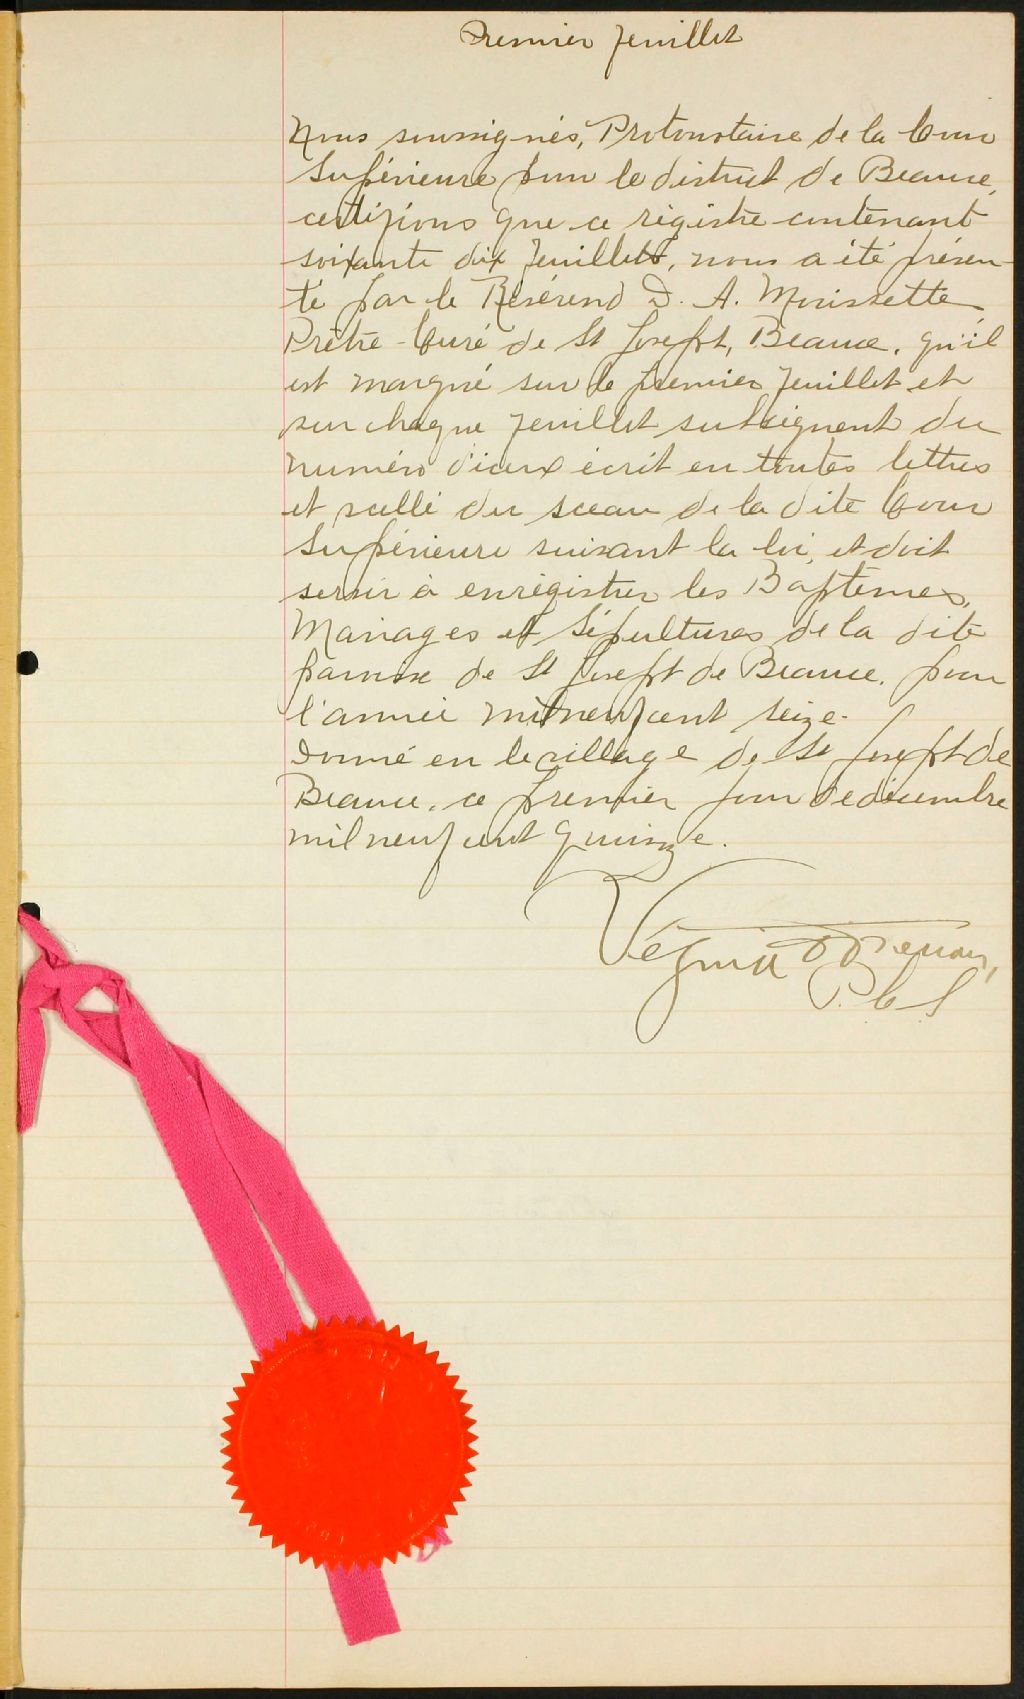 Premier feuillet
Nous soussignés, Protonotaire de la Cour
Supérieure pour le district de Beauce,
certifions que ce régistre contenant
soixante dix feuillets, nous a été présen-
té par le Révérend D. A. Morissette
Prêtre-Curé de St Joseph, Beauce, qu'il
est marqué sur le premier feuillet et
sur chaque feuillet subséquent du
numéro d'iceux écrit en toutes lettres
et scellé du sceau de la dite Cour
Supérieure suivant la loi, et doit
servir à enrégistrer les Baptêmes,
Mariages et Sépultures de la dite
paroisse de St Joseph de Beauce, pour
l'année mil neuf cent seize.
Donné en le village de St Joseph de
Beauce, ce premier jour de décembre
mil neuf cent quinze.
Vézina
P. C. S